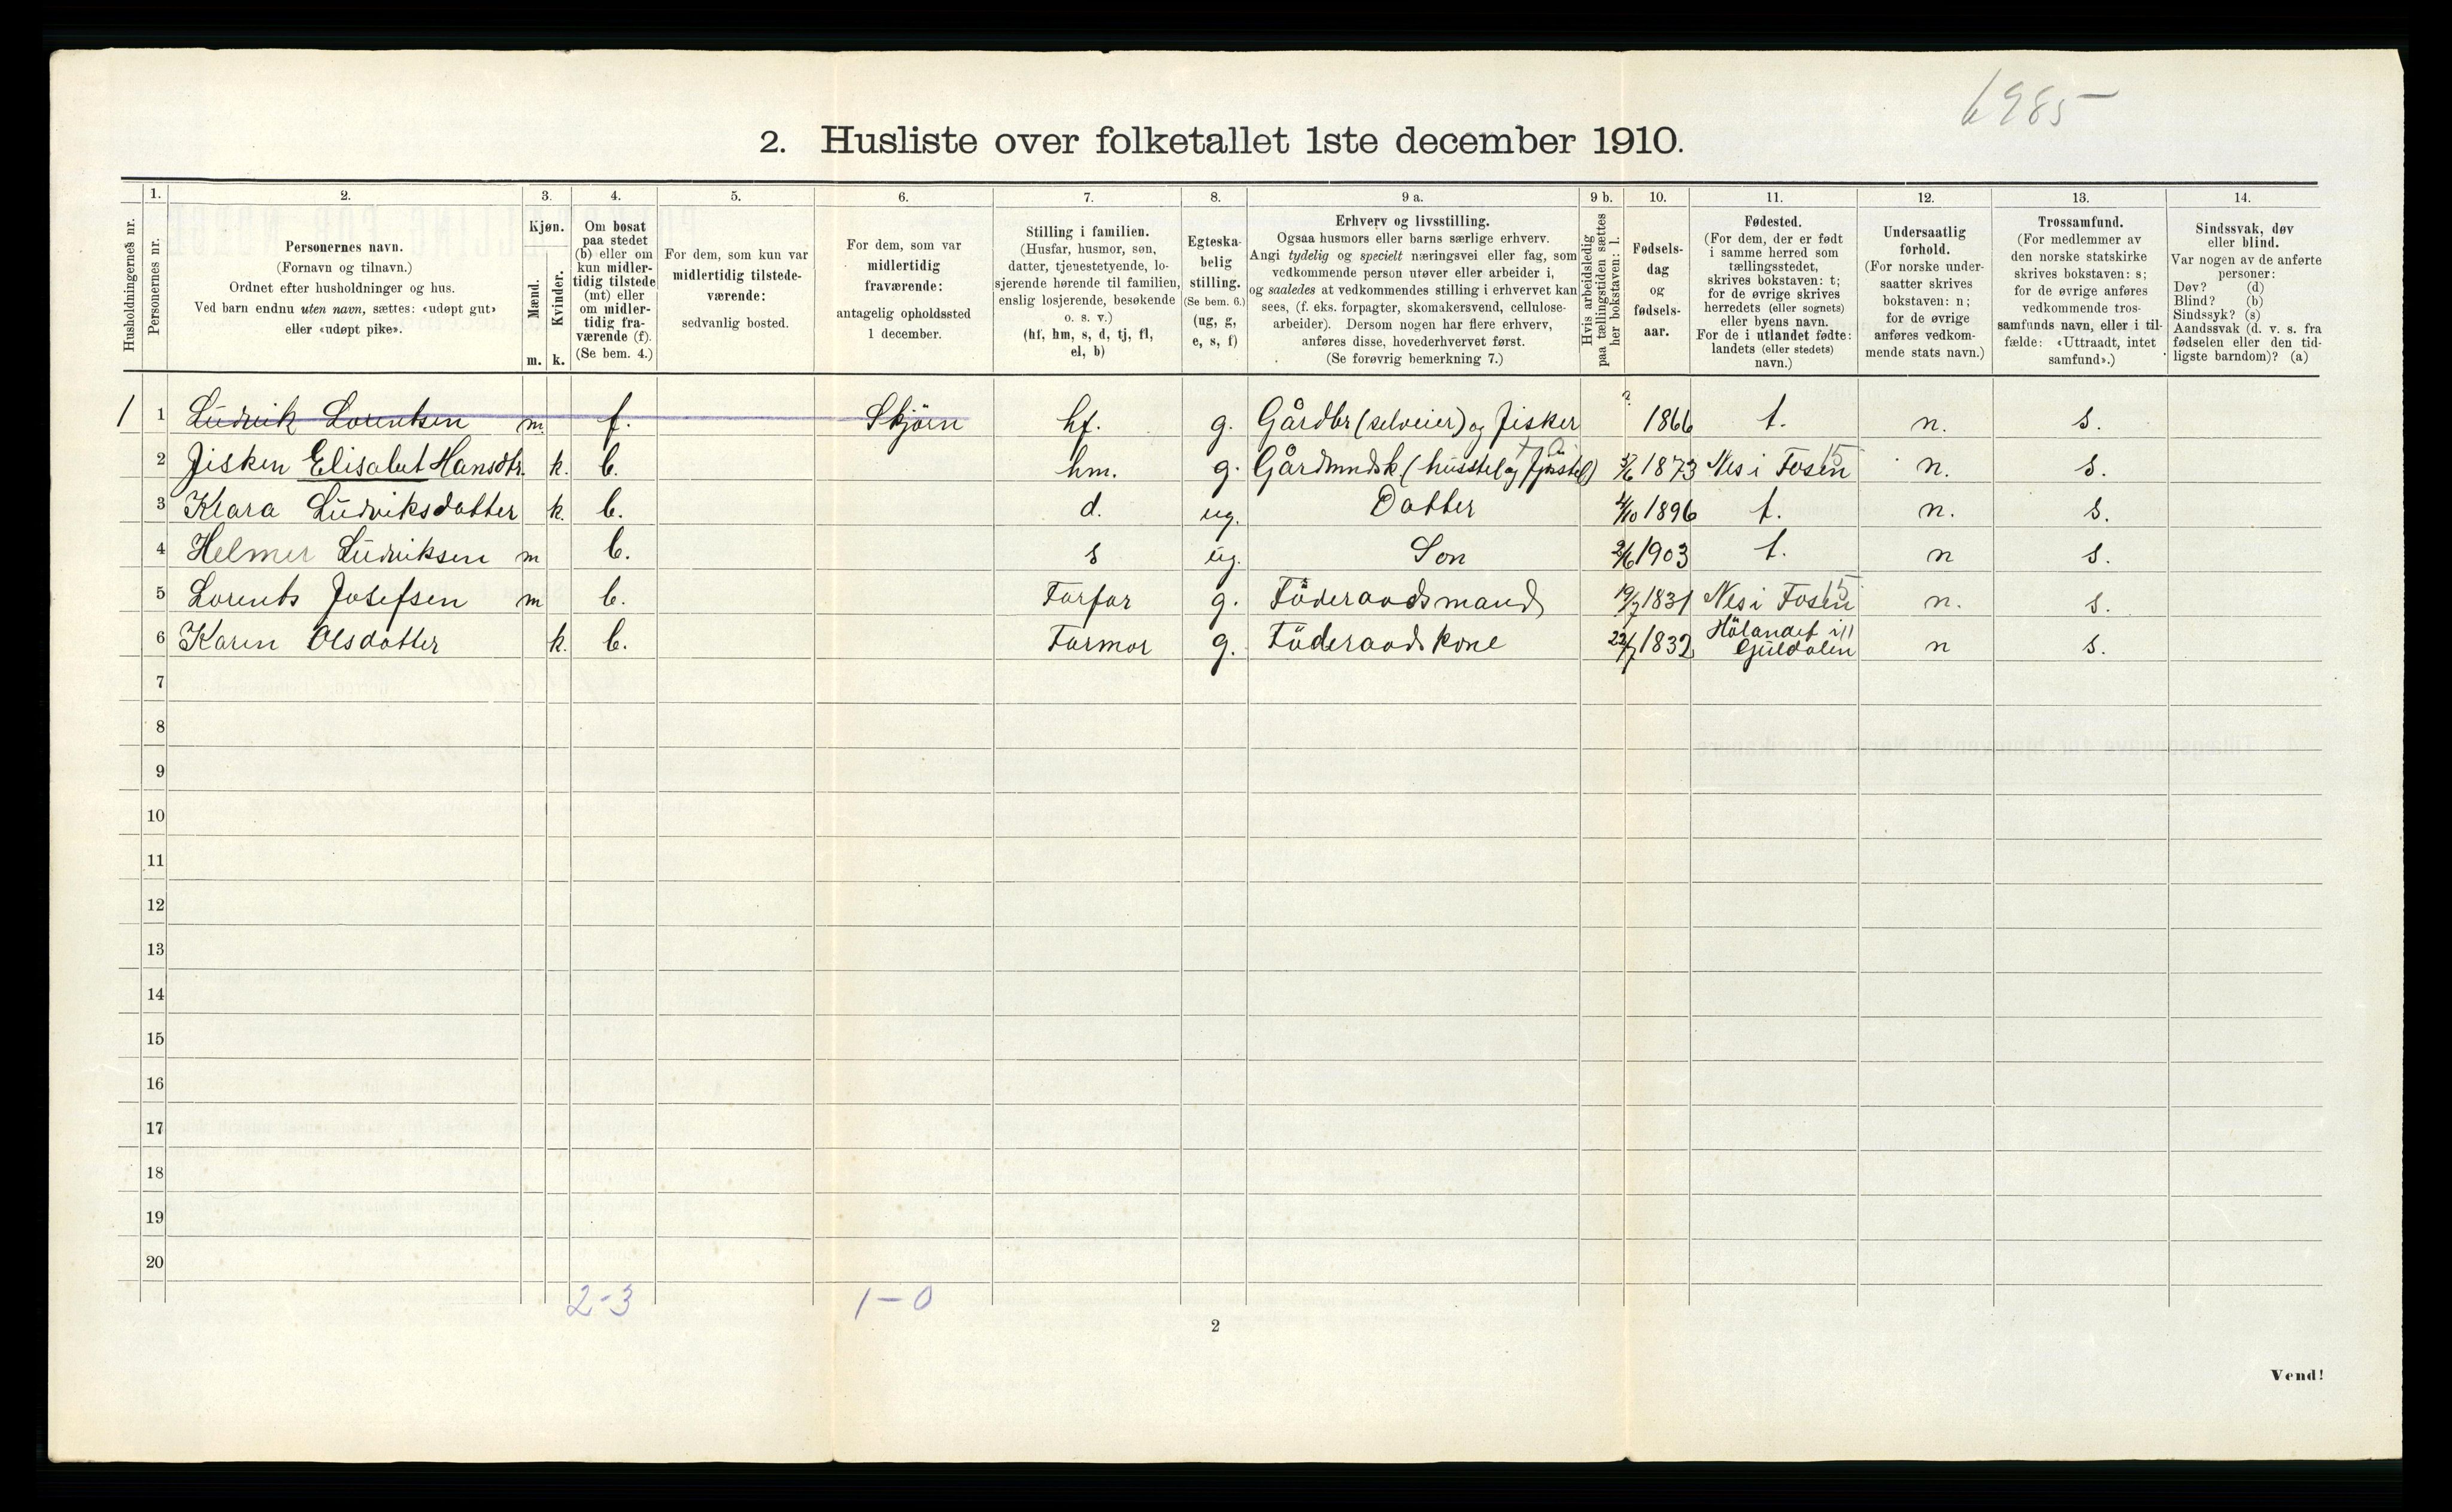 6985
2. Husliste over folketallet 1ste december 1910.
Husholdningernes nr.
1.
Personernes nr.
2.
Personernes navn.
(Fornavn og tilnavn.)
Ordnet efter husholdninger og hus.
Ved barn endnu uten navn, sættes: «udøpt gut»
eller «udøpt pike».
3.
Kjøn.
Mænd.
Kvinder.
m. k.
4.
Om bosat
paa stedet
(b) eller om
kun midler-
tidig tilstede
(mt) eller
om midler-
tidig fra-
værende (f).
(Se bem. 4.)
5.
For dem, som kun var
midlertidig tilstede-
værende:
sedvanlig bosted.
6.
For dem, som var
midlertidig
fraværende:
antagelig opholdssted
1 december.
7.
Stilling i familien.
(Husfar, husmor, søn,
datter, tjenestetyende, lo-
sjerende hørende til familien,
enslig losjerende, besøkende
o. s. v.)
(hf, hm, s, d, tj, fl,
el, b)
8.
Egteska-
belig
stilling.
(Se bem. 6.)
(ug, g,
e, s, f)
9 a.
Erhverv og livsstilling.
Ogsaa husmors eller barns særlige erhverv.
Angi tydelig og specielt næringsvei eller fag, som
vedkommende person utøver eller arbeider i,
og saaledes at vedkommendes stilling i erhvervet kan
sees, (f. eks. forpagter, skomakersvend, cellulose-
arbeider). Dersom nogen har flere erhverv,
anføres disse, hovederhvervet først.
(Se forøvrig bemerkning 7.)
9 b.
Hvis arbeidsledig
paa tællingstiden sættes
her bokstaven: l.
10.
Fødsels-
dag
og
fødsels-
aar.
11.
Fødested.
(For dem, der er født
i samme herred som
tællingsstedet,
skrives bokstaven: t;
for de øvrige skrives
herredets (eller sognets)
eller byens navn.
For de i utlandet fødte:
landets (eller stedets)
navn.)
12.
Undersaatlig
forhold.
(For norske under-
saatter skrives
bokstaven: n;
for de øvrige
anføres vedkom-
mende stats navn.)
13.
Trossamfund.
(For medlemmer av
den norske statskirke
skrives bokstaven: s;
for de øvrige anføres
vedkommende tros-
samfunds navn, eller i til-
fælde: «Uttraadt, intet
samfund».)
14.
Sindssvak, døv
eller blind.
Var nogen av de anførte
personer:
Døv? (d)
Blind? (b)
Sindssyk? (s)
Aandssvak (d. v. s. fra
fødselen eller den tid-
ligste barndom)? (a)
1 1 Ludvik Lorentsen m. f. Skjörn hf. g. Gårdbr (selveier) og Fisker ? 1866 t. n. s.
2 Fisken Elisabet Hansdtr. k. b. hm. g. Gårdmndsk (husstel og fjösstel) 5/6 1873 Nes i Fosen 15 n. s.
3 Klara Ludviksdatter k. b. d. ug. Datter 4/10 1896 t. n. s.
4 Helmer Ludviksen m b. s ug. Son 2/6 1903 t. n s.
5 Lorents Josefsen m b. Farfar g. Föderaadsmand 19/7 1831 Nes i Fosen 15 n. s.
6 Karen Olsdatter k. b. Farmor g. Föderaadskone 22/7 1832 Hölandet i
Guldalen n s.
7
8
9
10
11
12
13
14
15
16
17
18
19
20
2-3 1-0
2
Vend!